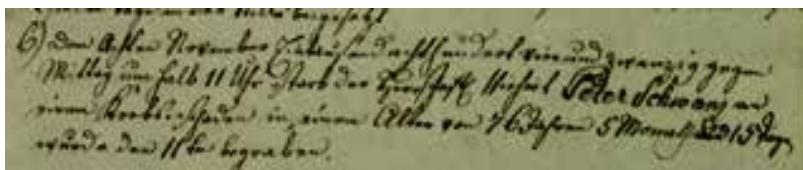 6) Den Achten November Eintausend achthundert ein und zwanzig gegen
Mittag um halb 11 Uhr starb der Michael Peter Schwanz an
einem Krebsschaden in einem Alter von 76 Jahren 5 Monath und 15 Tagen
wurde den 11ten begraben.